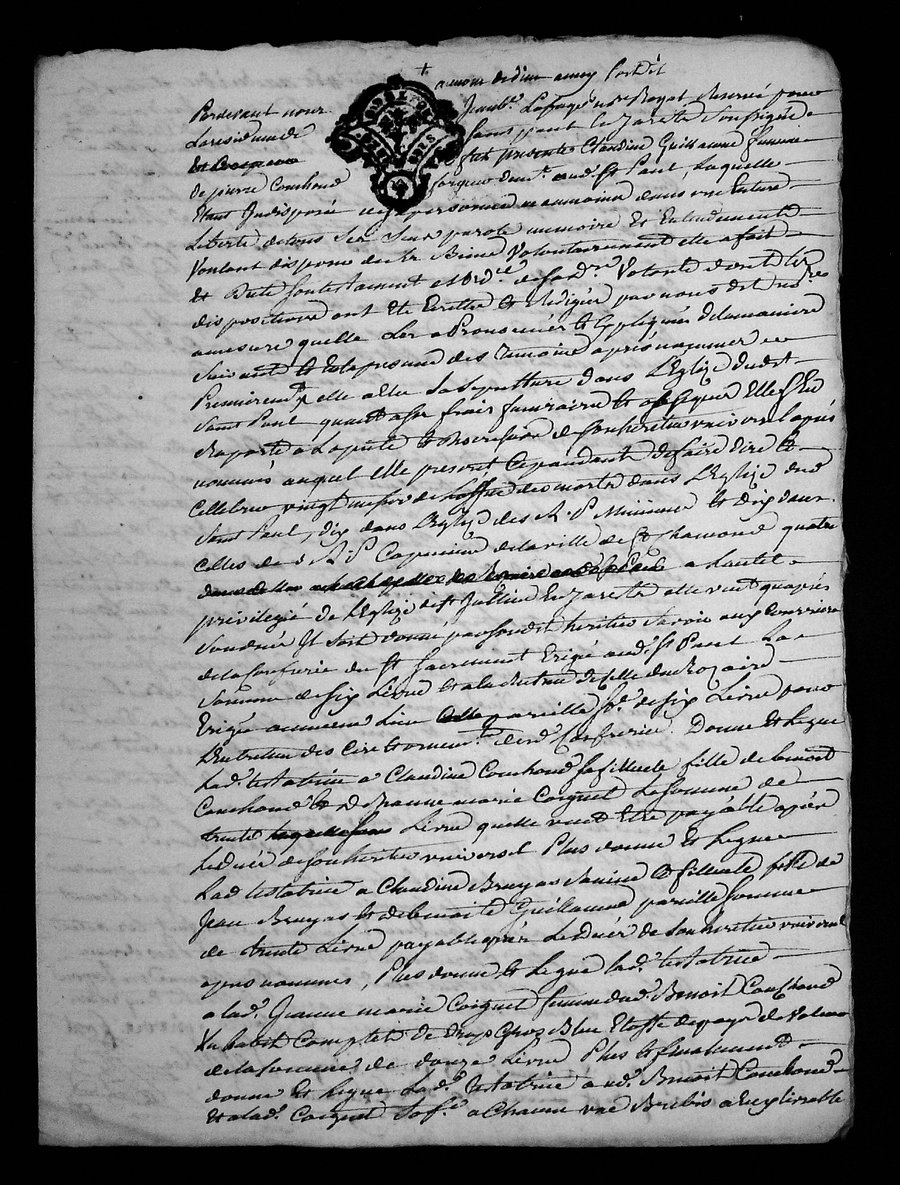 au nom de dieu amen soit dit
Pardevant nous Jean Bte Lafaye nore Royal Reservé pour
La residence de Saint paul En Jarest Soussigné
fut presente Claudine Guillaume femme
de pierre Couchoud forgeur demt aud. St Paul, Laquelle
Etant Indisposée de sa personne neanmoins dans une Entiere
Liberté de tous ses sens parole memoire Et Entendement
Voulant disposer de ses Biens Volontairement elle a fait
Et Dicté son testament et ord.e de dere Volonté dont les
dispositions ont Eté Ecrittes Et Redigées par nous dit nore
a mesure quelle Les a Prononcées Et Expliquées de la maniere
suivante Et En la presence des Temoins apres nommés
Premierement elle Elle Sa Sepulture dans L'Eglise dudt
Saint Paul quant a ses frais funeraires Et obseques Elle S'En
Raporte a La pieté Et Discretion de son heritier universel apres
nommé auquel elle prescrit Cependant de faire dire Et
Celebrer vingt messes de L'office des morts dans L'Eglise dud.
Saint Paul, dix dans L'Eglise des R. P. Minimes Et Dix dans
Celles des R. P. Capucins de la ville de St Chamond quatre
a Lautel
privilegié de L'Eglise de St Jullien En Jarest elle veut qu'apres
Son decés Il soit donné par son dit heritier savoir aux Courriers
de la Confrerie du St Sacrement Erigée aud. St Paul La
Somme de six Livres Et a la de Celle du Rozaire
Erigée au meme Lieu pareille Se de six Livres pour
L'Entretien des Cires desd. Confreries. Donne Et Legue
Lad. testatrice a Claudine Couchoud sa filleule fille de benoit
Couchoud Et De Jeanne marie Coignet La somme de
trente Livres quelle veut Etre payable apres
Le decés de son heritier universel Plus donne Et Legue
Lad testatrice a Claudine Bruyas sa filleule fille de
Jean Bruyas Et de benoite Guillaume pareille somme
de trente Livres payable apres Le decés de son heritier universel
apres nommé, Plus donne Et Legue lad. testatrice
a lad. Jeanne marie Coignet femme dud. Benoit Couchoud
Un habit Complet de Bleu Etoffe du pays de Valeur
de la somme de douze Livres Plus Et finalement
donne Et Legue Lad. testatrice aud. Benoit Couchoud
Et a lad. Coignet Sa fe a Chacun une Brebis